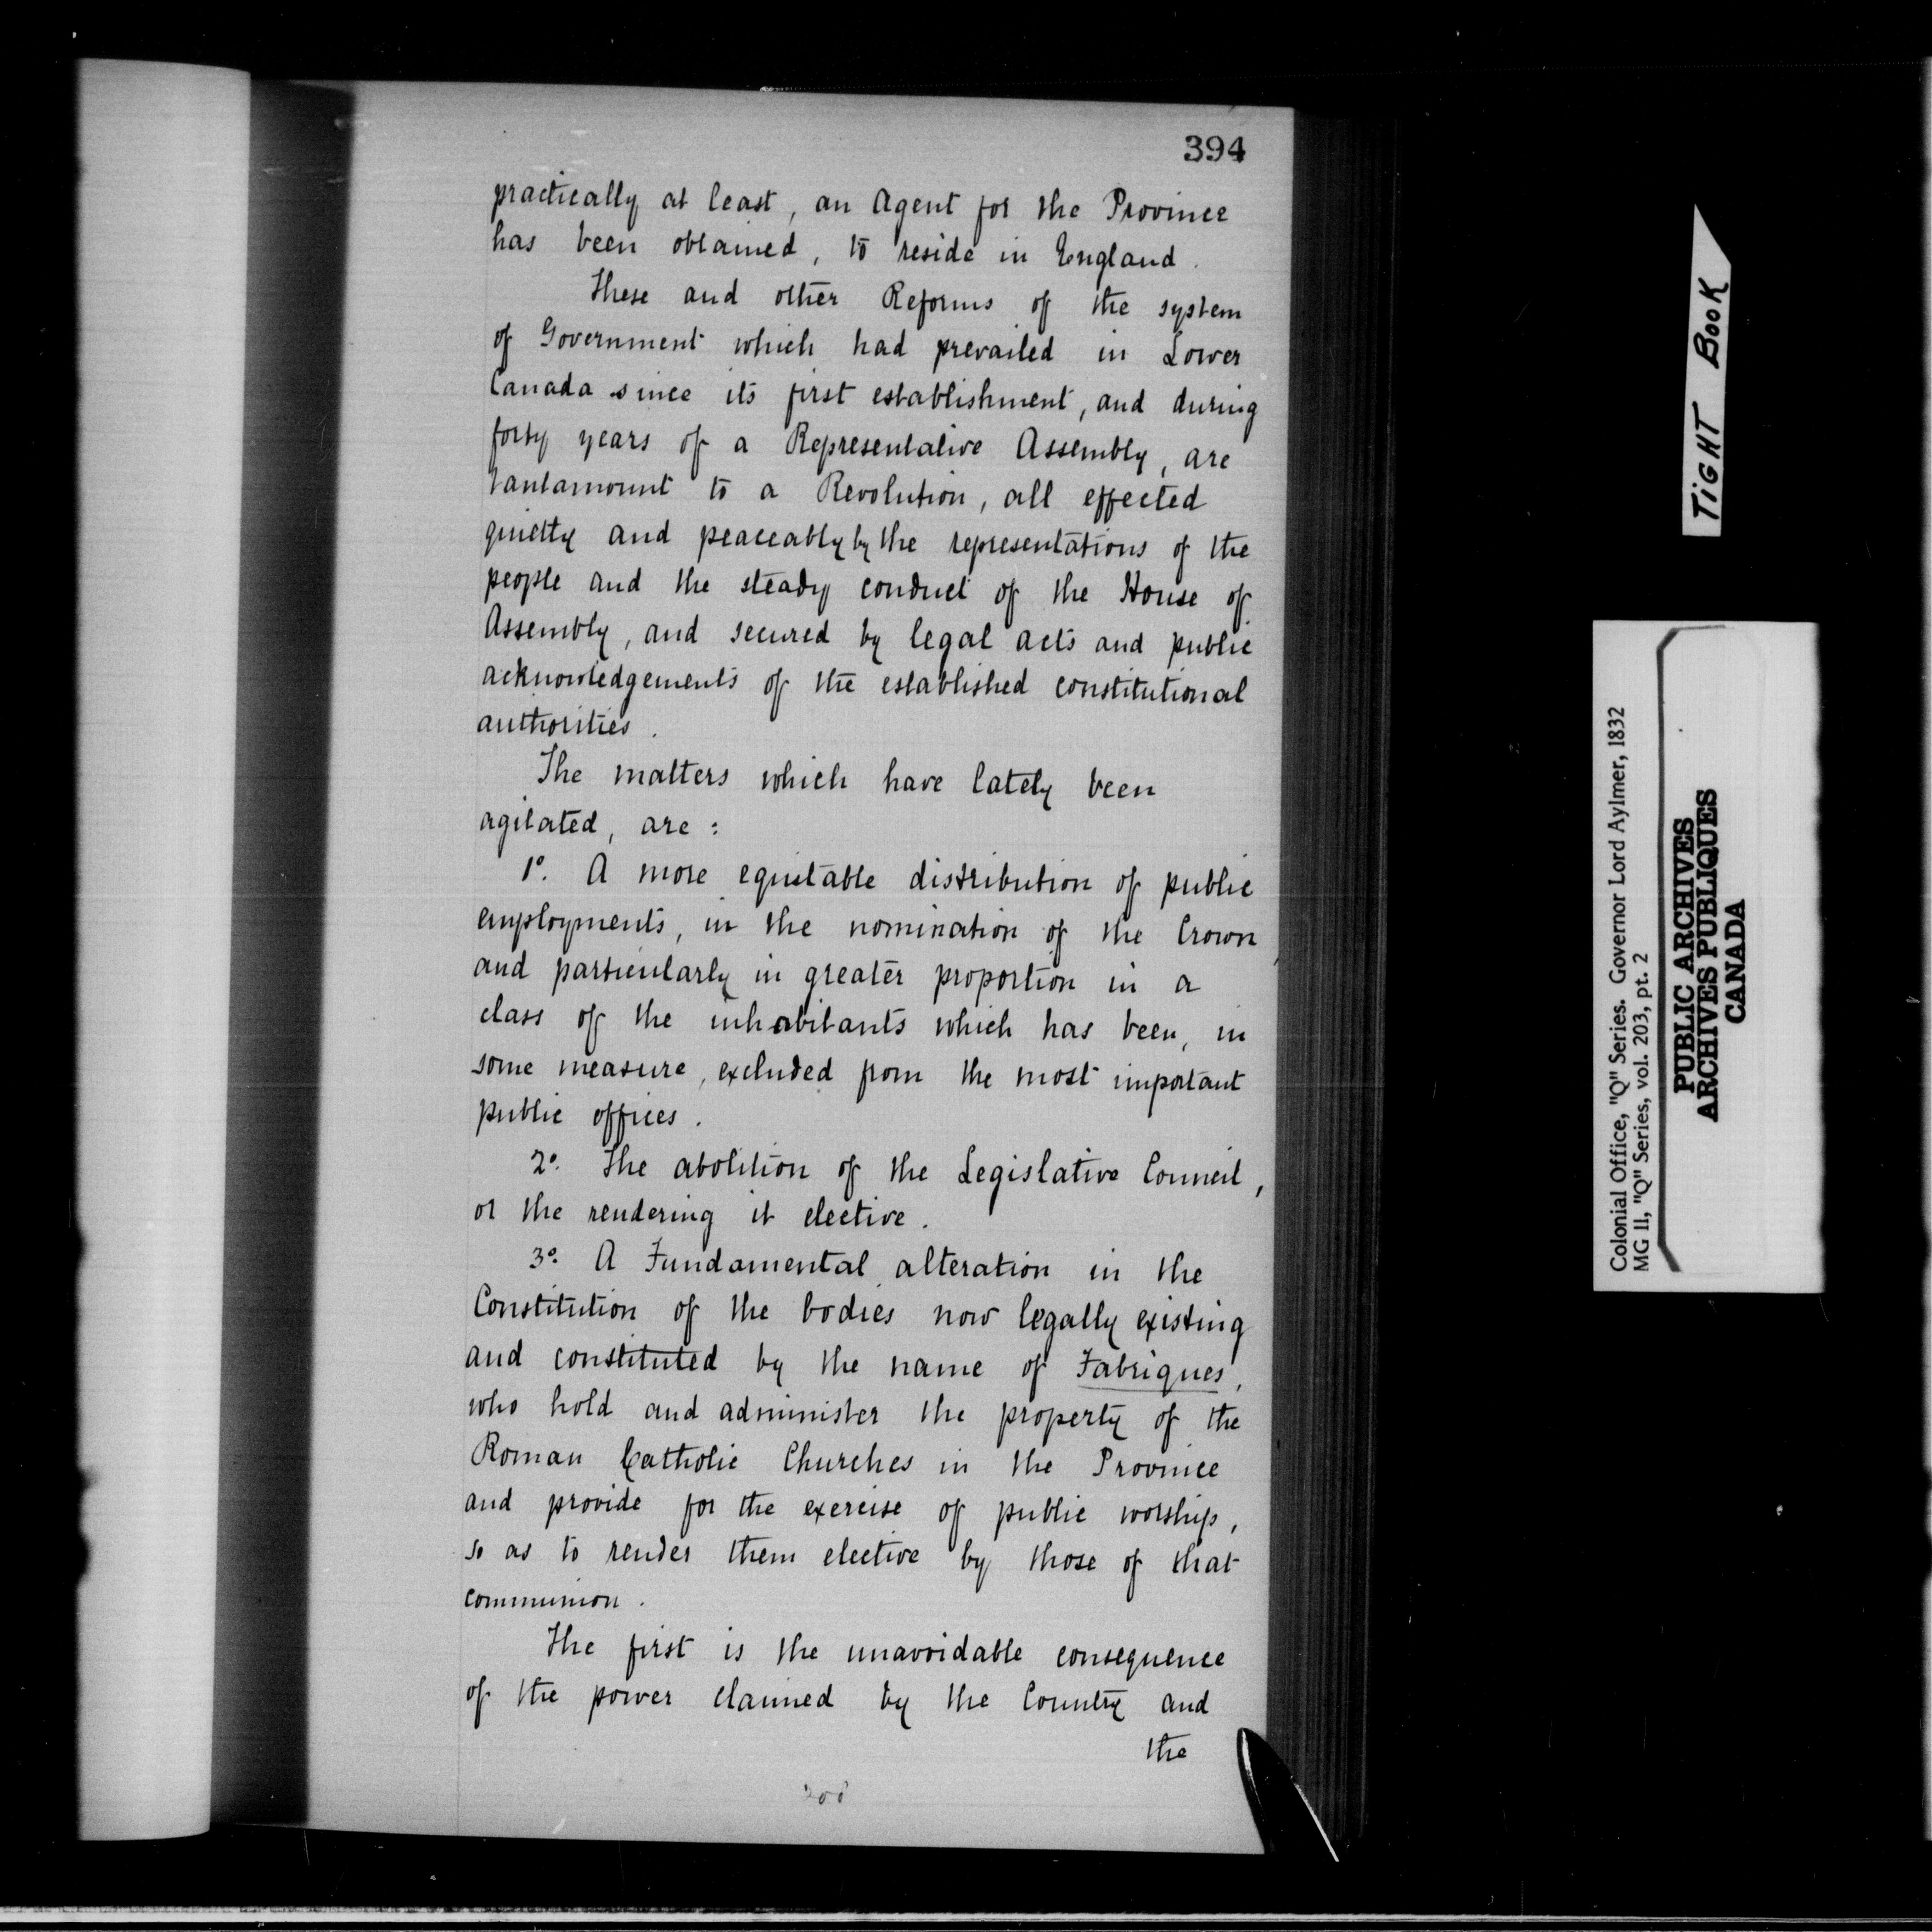 394
practically at least, an Agent for the Province
has been obtained, to reside in England.
These and other Reforms of the system
of Government which had prevailed in Lower
Canada since its first establishment, and during
forty years of a Representative Assembly, are
tantamount to a Revolution, all effected
quietly and peaceably by the representations of the
people and the steady conduct of the House of
Assembly, and secured by legal acts and public
acknowledgements of the established constitutional
authorities.
The matters which have lately been
agitated, are:
1º. A more equitable distribution of public
employments, in the nomination of the Crown,
and particularly in greater proportion in a
class of the inhabitants which has been, in
some measure, excluded from the most important
public offices.
2º. The abolition of the Legislative Council,
or the rendering it elective.
3º. A Fundamental alteration in the
Constitution of the bodies now legally existing
and constituted by the name of Fabriques,
who hold and administer the property of the
Roman Catholic Churches in the Province
and provide for the exercise of public worship,
so as to render them elective by those of that
communion.
The first is the unavoidable consequence
of the power claimed by the Country and
the
TIGHT BOOK
Colonial Office, "Q" Series. Governor Lord Aylmer, 1832
MG 11, "Q" Series, vol. 203, pt. 2
PUBLIC ARCHIVES
ARCHIVES PUBLIQUES
CANADA